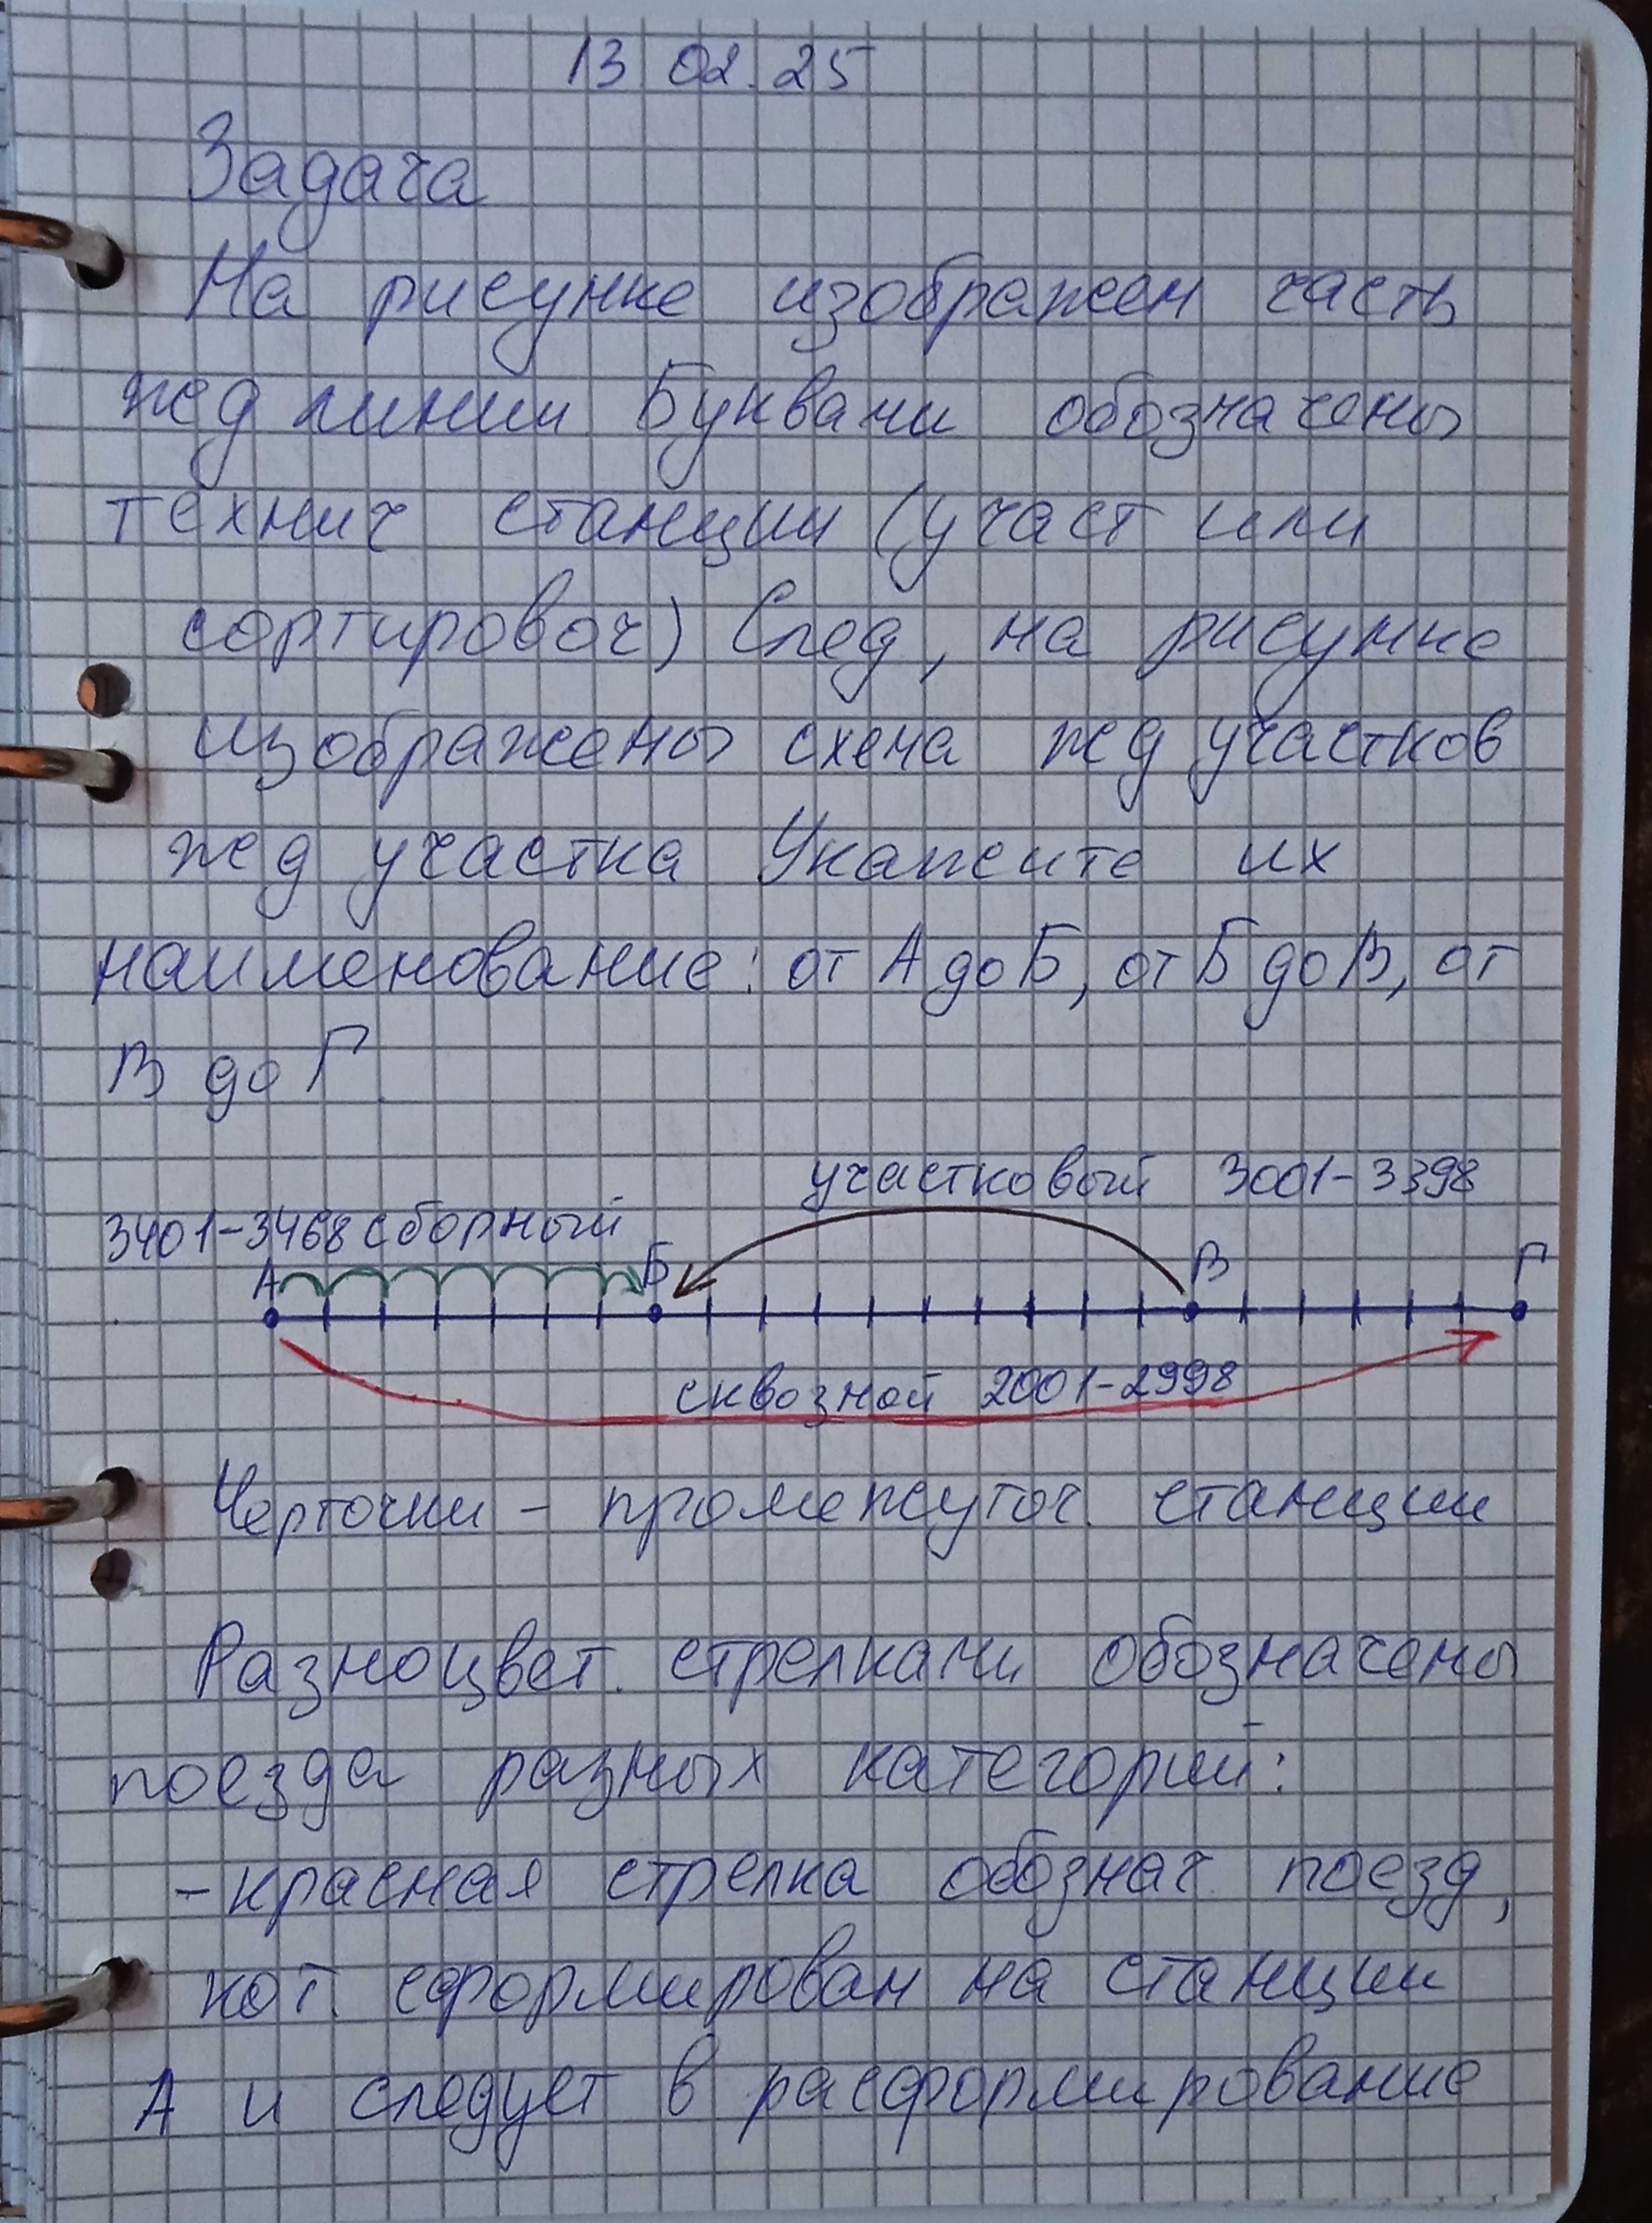 13 02.25
Задача
На рисунке изображен часть
жед линии Буквами обозначены
технич станции (участ или
сортировоч) След, на рисунке
изображены схема жед участков
жед участка Укажите их
наименование: от А до Б, от Б до В, от
В до Г.
участковый 3001-3398
3401-3468 сборный
А Б В Г
сквозной 2001-2998
Черточки - промежуточ. станции
Разноцвет. стрелками обозначены
поезда разных категорий:
- красная стрелка обознач поезд,
кот. сформирован на станции
А и следует в расформирование